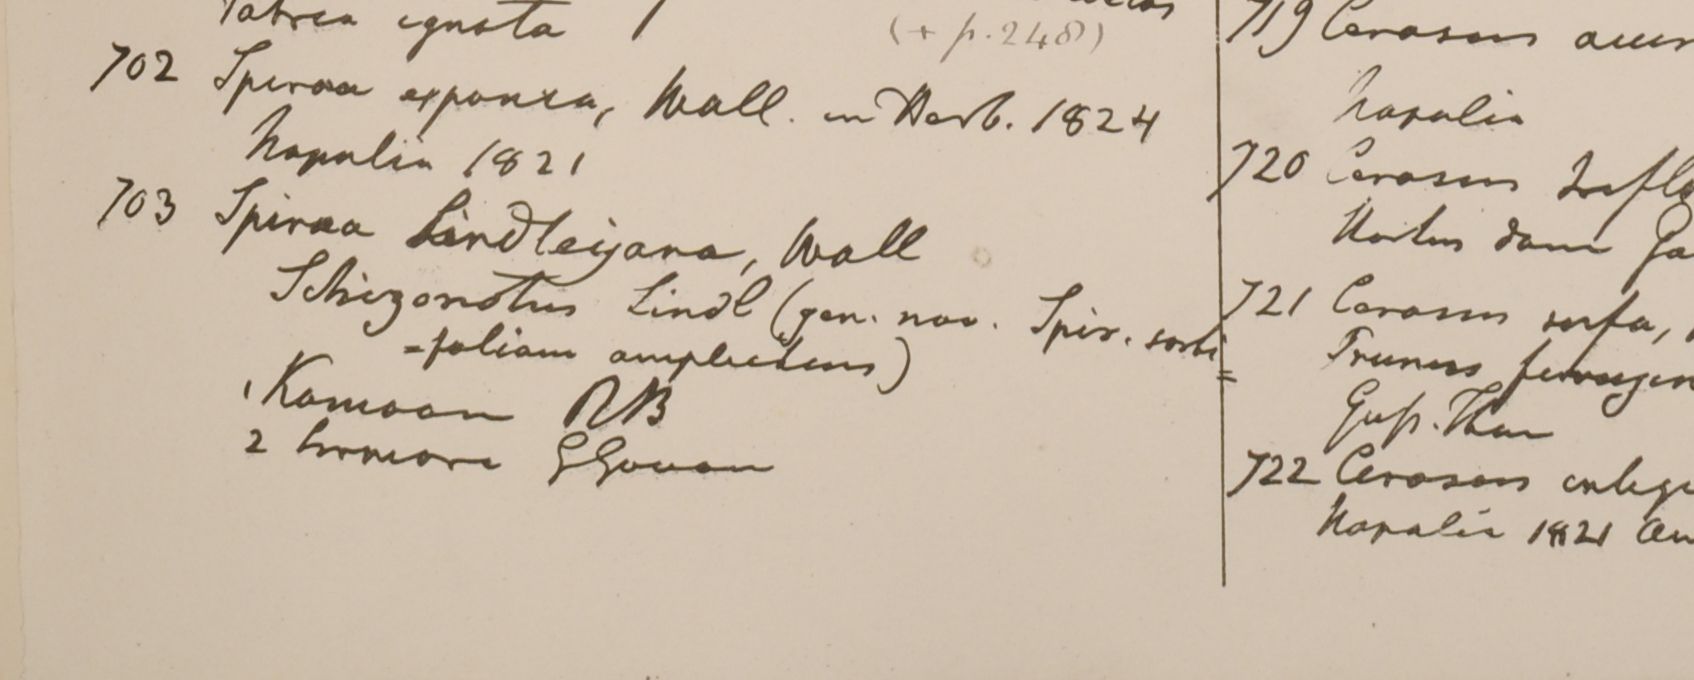 Patria ignota
(+ p. 248)
702 Spiraea expansa, Wall. in Herb. 1824
Napalia 1821
703 Spiraea Lindleyana, Wall
Schizonotus Lindl (gen. nov. Spir. sorbi
=foliam amplectens)
1 Kamaon RB
2 Sirmore GGovan
719 Cerasus
Napalia
720 Cerasus
Hortus
721 Cerasus rufa,
Prunus
722 Cerasus
Napalia 1821